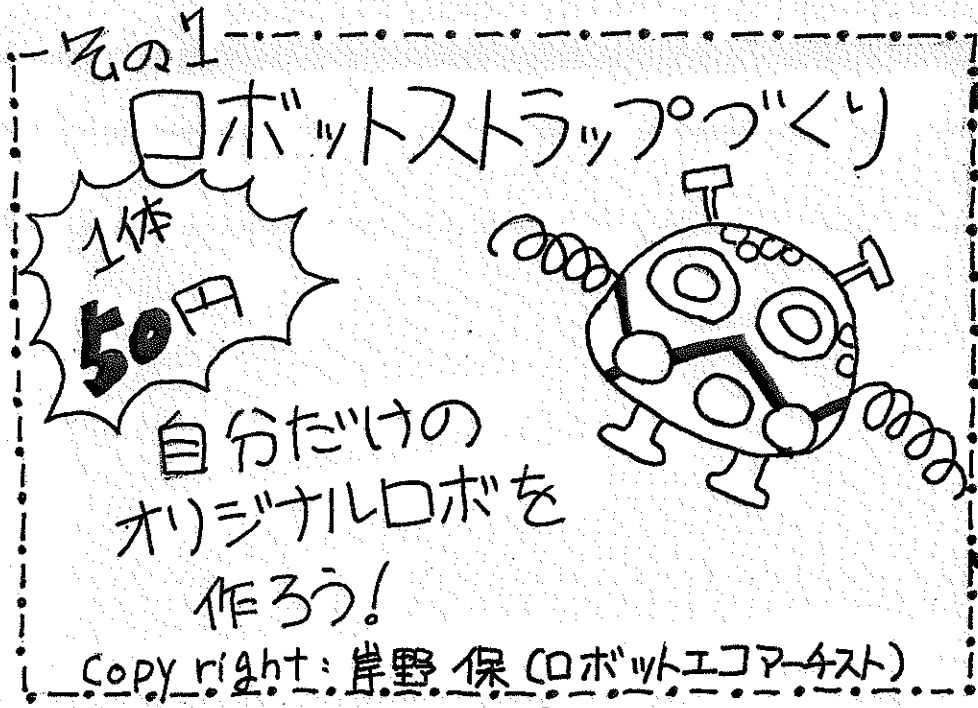 その1
ロボットストラップづくり
1体
50円
自分だけの
オリジナルロボを
作ろう!
Copy right:岸野 保(ロボットエコアーチスト)